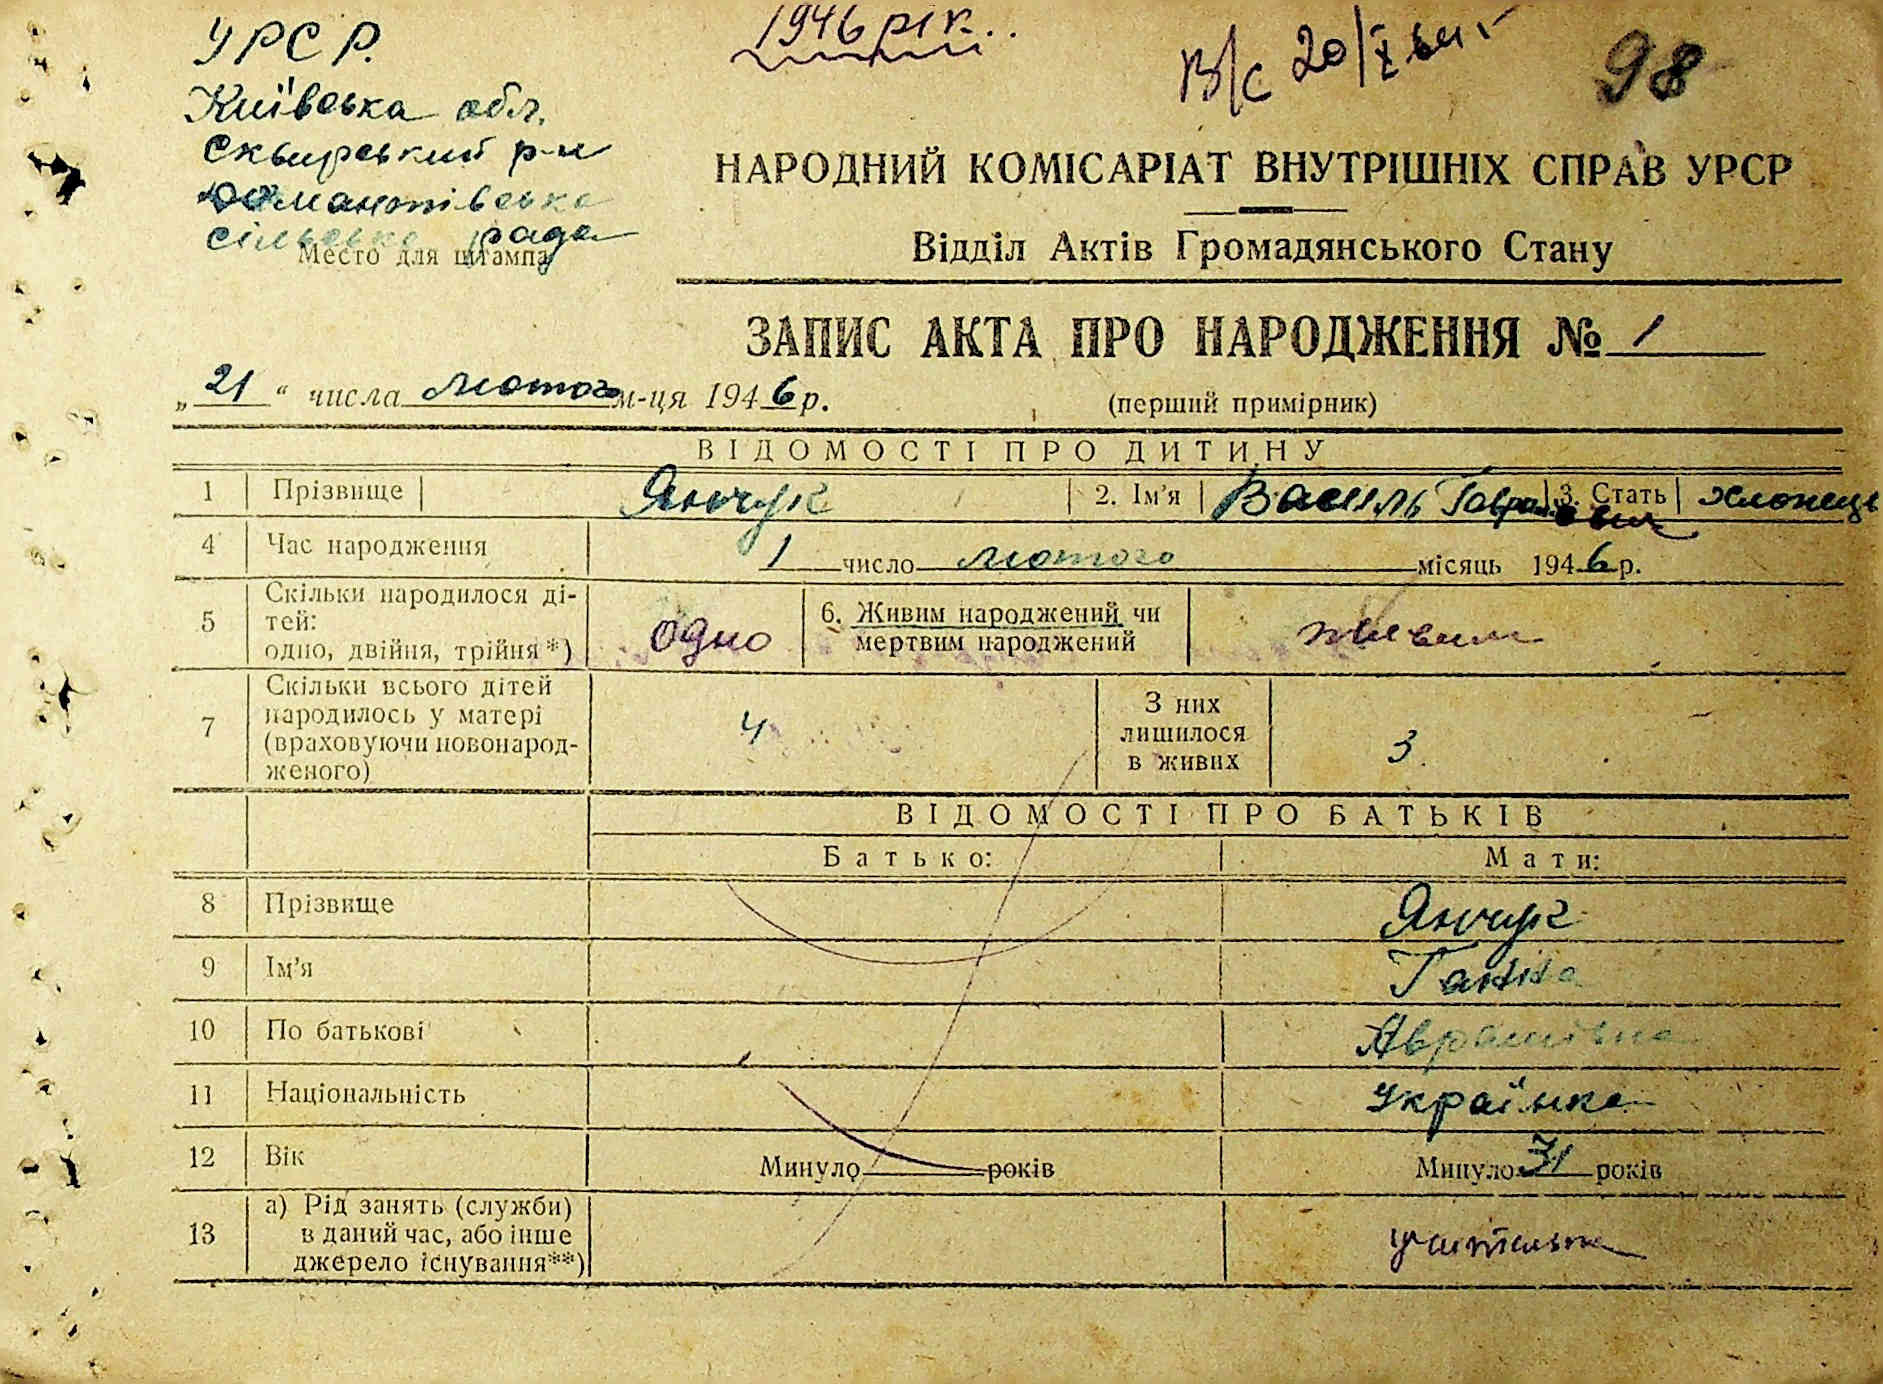 1946 рік..
УРСР.
98
Київська обл.
В/с 20/X
Сквирський р-н
Домантівська
сільська рада
Место для штампа
НАРОДНИЙ КОМІСАРІАТ ВНУТРІШНІХ СПРАВ УРСР
Відділ Актів Громадянського Стану
ЗАПИС АКТА ПРО НАРОДЖЕННЯ № 1
„21“ числа лютого м-ця 1946 р.
(перший примірник)
ВІДОМОСТІ ПРО ДИТИНУ
1 Прізвище Янчук 2. Ім'я Василь 3. Стать хлопець
4 Час народження 1 число лютого місяць 1946 р.
5 Скільки народилося ді-
тей:
одно, двійня, трійня*)
одно
6. Живим народжений чи
мертвим народжений
живим
7 Скільки всього дітей
народилось у матері
(враховуючи новонарод-
женого)
4
З них
лишилося
в живих
3.
ВІДОМОСТІ ПРО БАТЬКІВ
Батько: Мати:
8 Прізвище Янчук
9 Ім'я Ганна
10 По батькові Аврамівна
11 Національність Українка
12 Вік Минуло років Минуло 31 років
13 а) Рід занять (служби)
в даний час, або інше
джерело існування**)
учителька